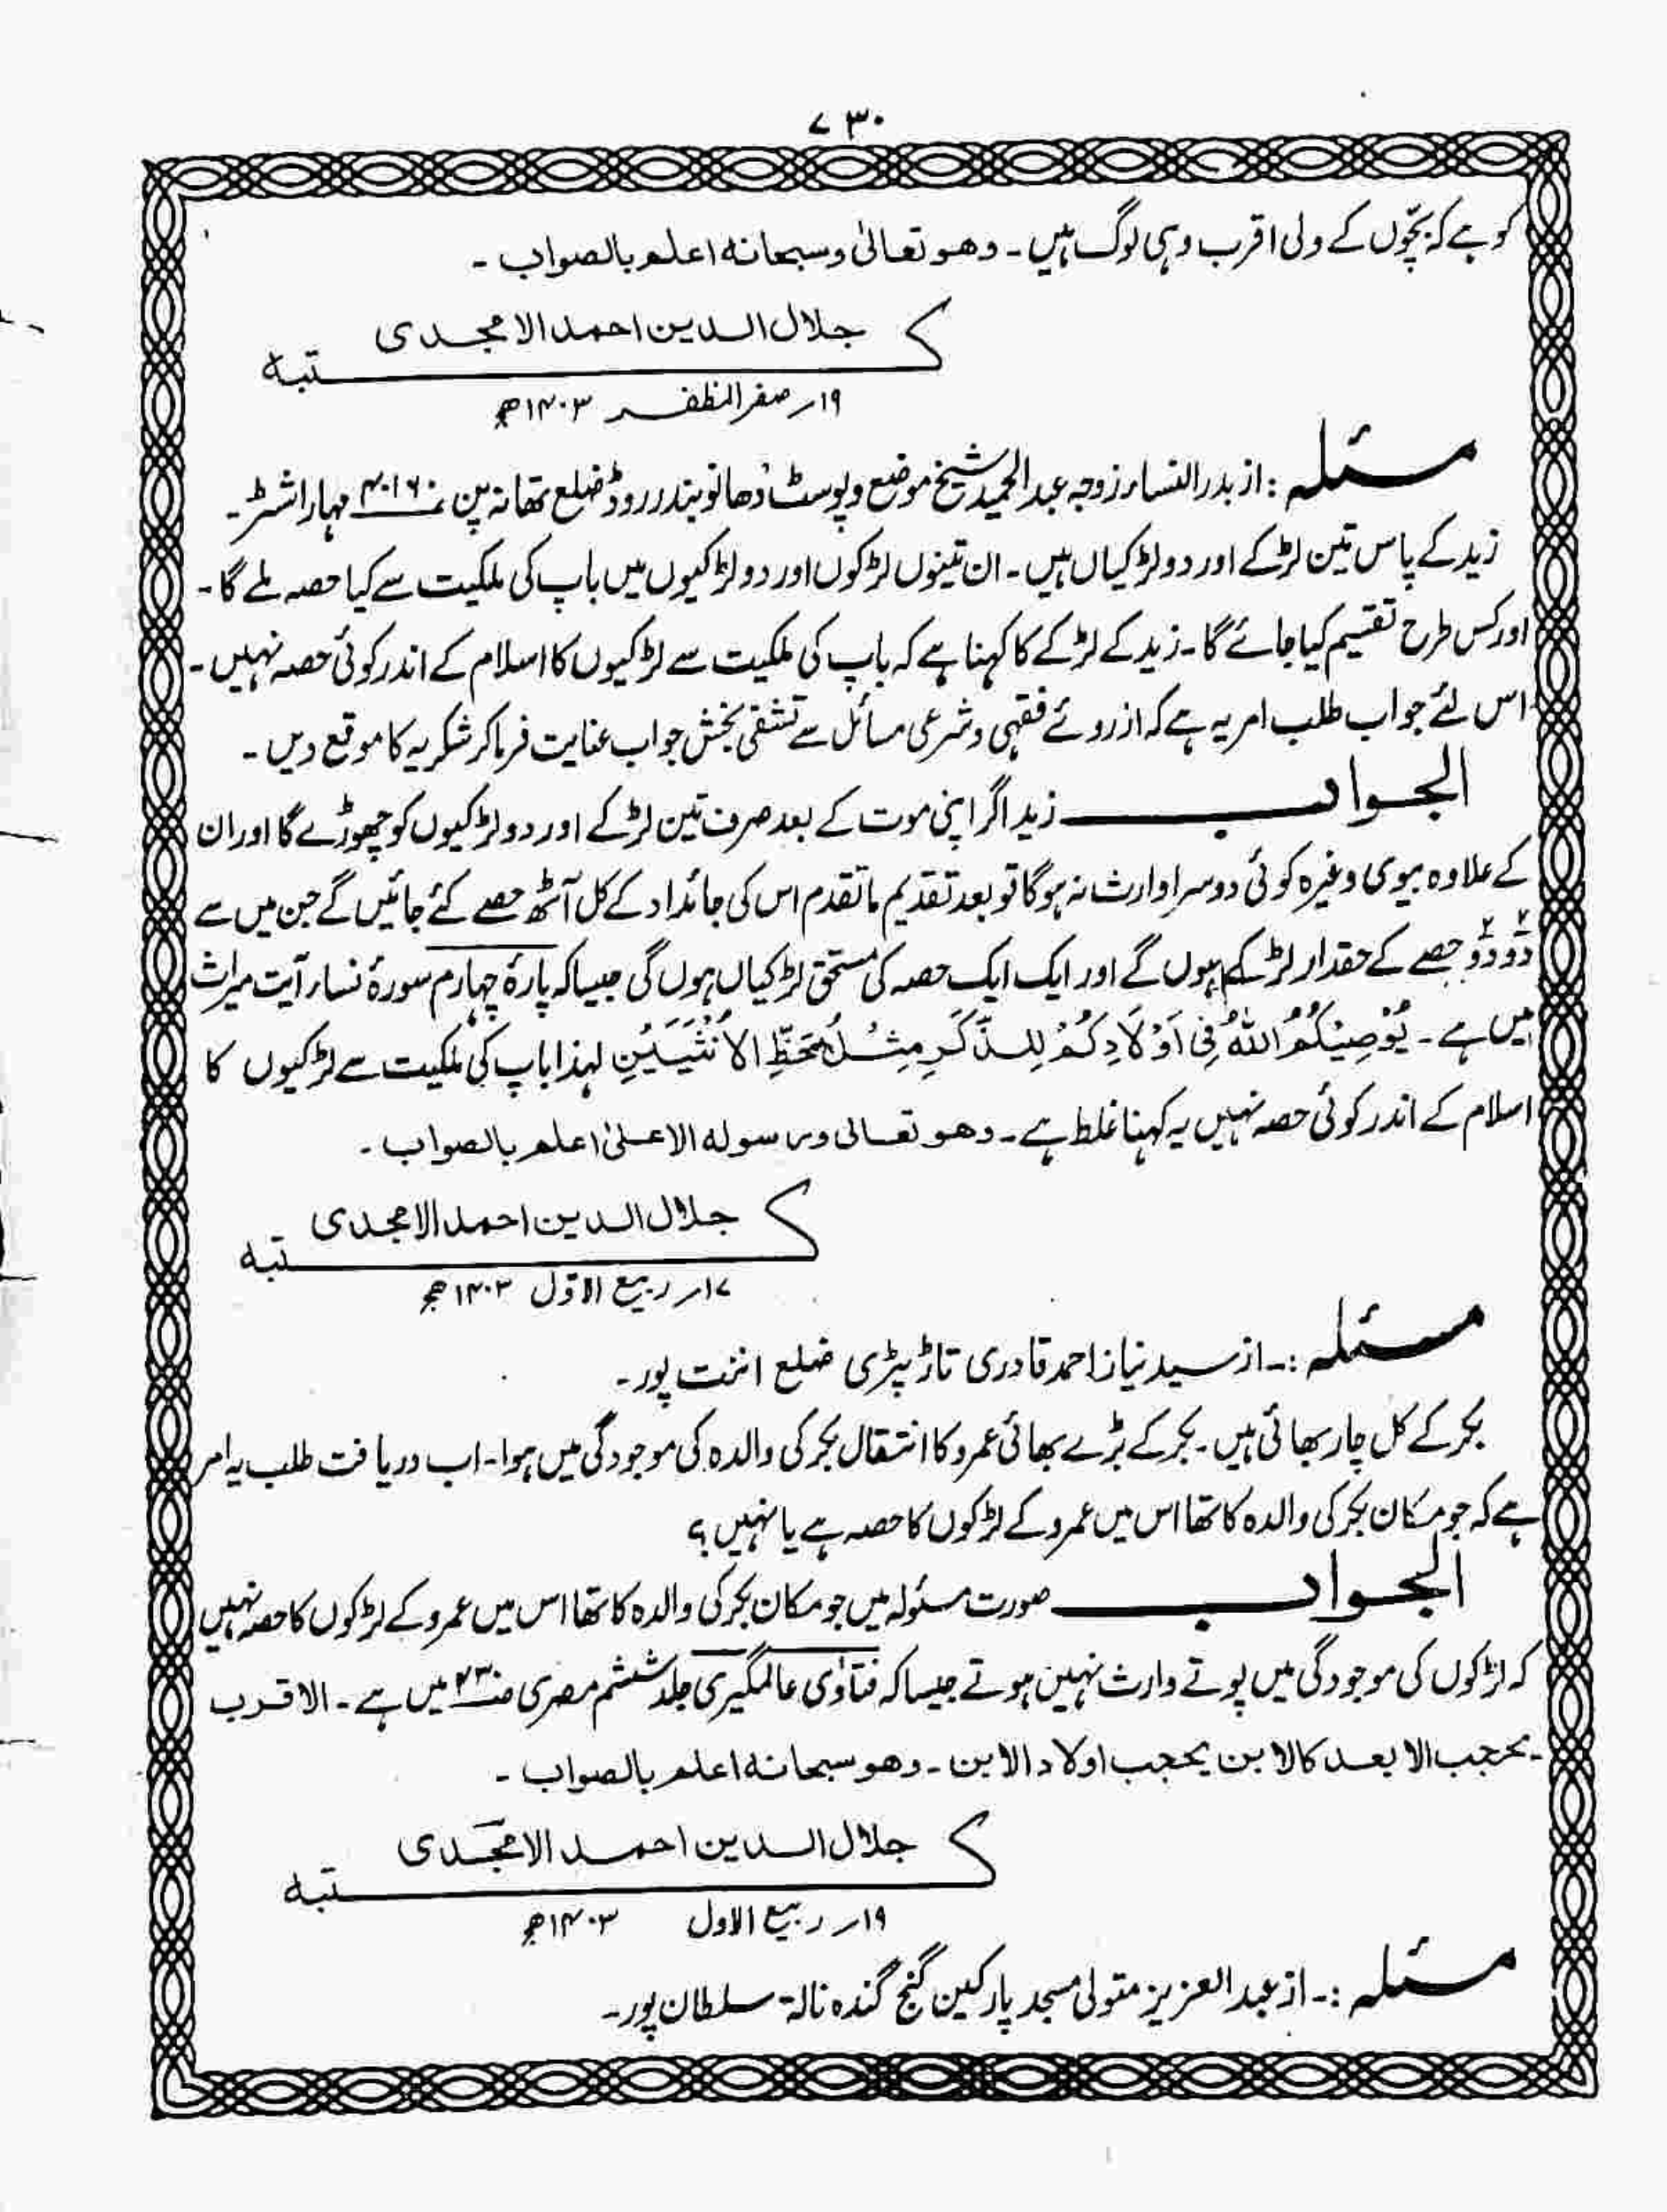 ۷۳۰
کو ہے کہ بچّوں کے ولی اقرب وہی لوگ ہیں۔ وھو تعالیٰ وسبحانہ اعلم بالصواب۔
جلال الدین احمد الامجدی
کتبہ
۱۹؍ صفر المظفر ۱۴۰۳ھ
مسئلہ : از بدر النساء زوجہ عبد الحمید شیخ موضع و پوسٹ دھانو بندر روڈ ضلع تھانہ پن ۴۰۱۶۰ مہاراشٹر۔
زید کے پاس تین لڑکے اور دو لڑکیاں ہیں۔ ان تینوں لڑکوں اور دو لڑکیوں میں باپ کی ملکیت سے کیا حصہ ملے گا۔
اور کس طرح تقسیم کیا جائے گا۔ زید کے لڑکے کا کہنا ہے کہ باپ کی ملکیت سے لڑکیوں کا اسلام کے اندر کوئی حصہ نہیں۔
اس لئے جواب طلب امر یہ ہے کہ از روئے فقہی و شرعی مسائل سے تشفی بخش جواب عنایت فرما کر شکریہ کا موقع دیں۔
الجواب زید اگر اپنی موت کے بعد صرف تین لڑکے اور دو لڑکیوں کو چھوڑے گا اور ان
کے علاوہ بیوی وغیرہ کوئی دوسرا وارث نہ ہوگا تو بعد تقدیم ماتقدم اس کی جائداد کے کل آٹھ حصے کئے جائیں گے جن میں سے
دو دو حصے کے حقدار لڑکے ہوں گے اور ایک ایک حصہ کی مستحق لڑکیاں ہوں گی جیسا کہ پارۂ چہارم سورۂ نساء آیت میراث
میں ہے۔ یُوْصِیْکُمُ اللّٰہُ فِیْ اَوْلَادِکُمْ لِلذَّکَرِ مِثْلُ حَظِّ الْاُنْثَیَیْنِ لہٰذا باپ کی ملکیت سے لڑکیوں کا
اسلام کے اندر کوئی حصہ نہیں یہ کہنا غلط ہے۔ وھو تعالی ورسولہ الاعلیٰ اعلم بالصواب۔
جلال الدین احمد الامجدی
کتبہ
۱۷؍ ربیع الاوّل ۱۴۰۳ھ
مسئلہ :۔ از سید نیاز احمد قادری تاڑپتری ضلع اننت پور۔
بکر کے کل چار بھائی ہیں۔ بکر کے بڑے بھائی عمرو کا انتقال بکر کی والدہ کی موجودگی میں ہوا۔ اب دریافت طلب یہ امر
ہے کہ جو مکان بکر کی والدہ کا تھا اس میں عمرو کے لڑکوں کا حصہ ہے یا نہیں؟
الجواب صورت مسئولہ میں جو مکان بکر کی والدہ کا تھا اس میں عمرو کے لڑکوں کا حصہ نہیں
کہ لڑکوں کی موجودگی میں پوتے وارث نہیں ہوتے جیسا کہ فتاوٰی عالمگیری جلد ششم مصری میں ہے۔ الاقرب
یحجب الابعد کالابن یحجب اولاد الابن۔ وھو سبحانہ اعلم بالصواب۔
جلال الدین احمد الامجدی
کتبہ
۱۹؍ ربیع الاول ۱۴۰۳ھ
مسئلہ :۔ از عبد العزیز متولی مسجد پارکین گنج گندہ نالہ سلطان پور۔